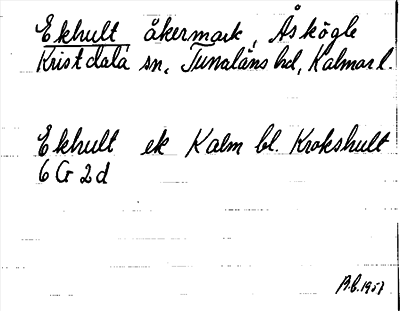 Ekhult åkermark, Åskögle
Kristdala sn, Tunaläns hd, Kalmar l.
Ekhult ek Kalm bl. Krokshult
6 G 2 d
1957